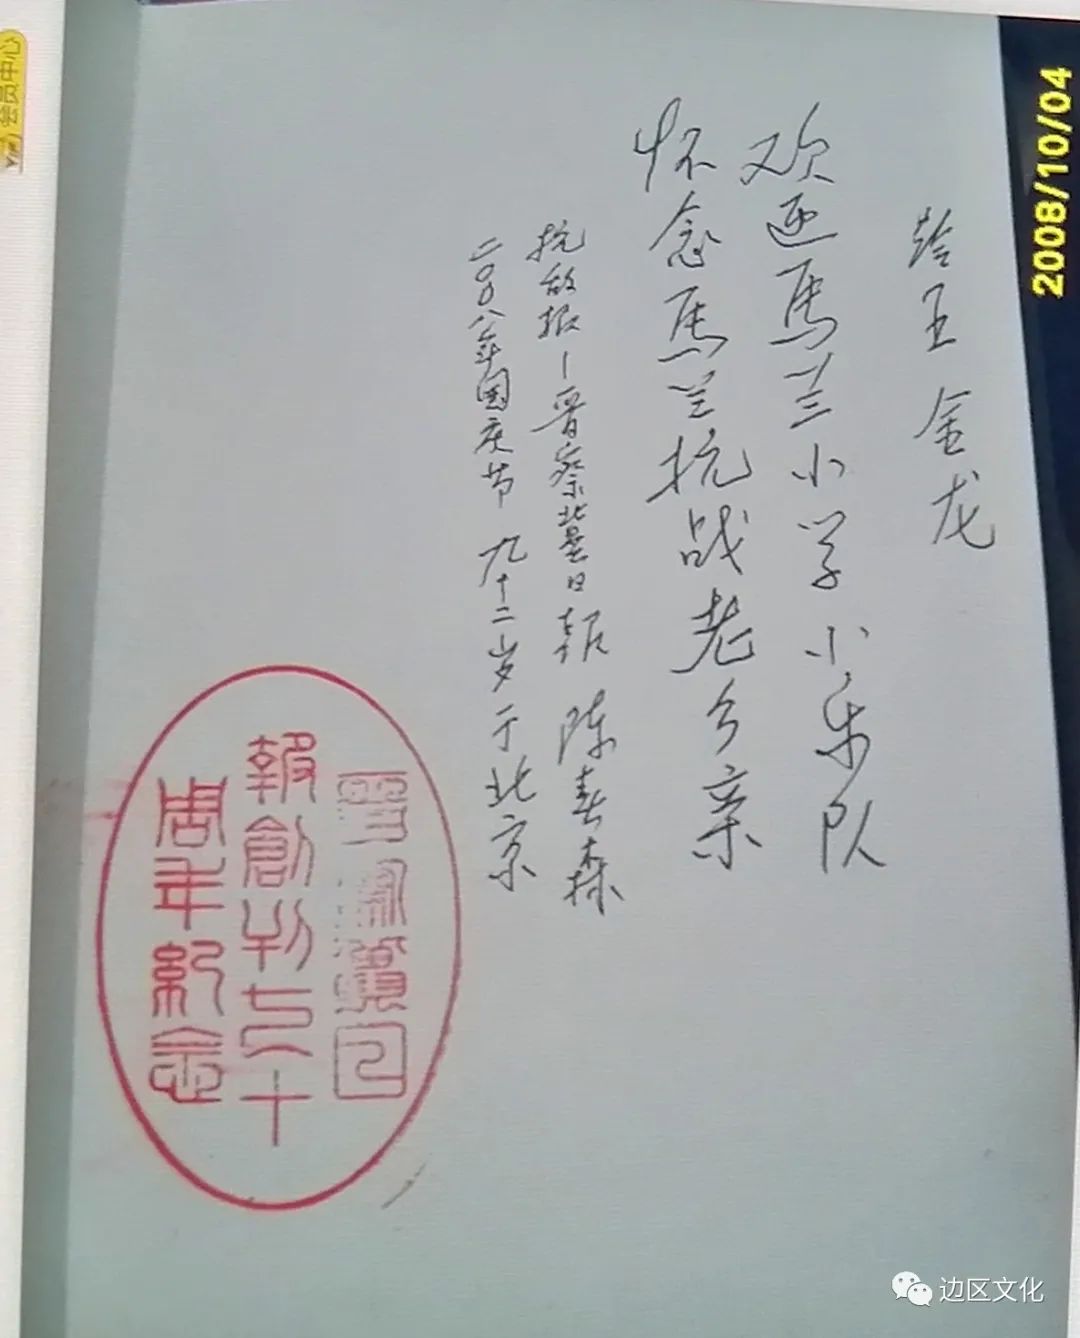 赠王金龙
欢迎馬兰小学小乐队
怀念馬兰抗战老乡亲
抗敌报－晋察冀日报 陈春森
二〇〇八年国庆节 九十二岁于北京
晋察冀日
報創刊七十
周年紀念
2008/10/04
会员中心
边区文化